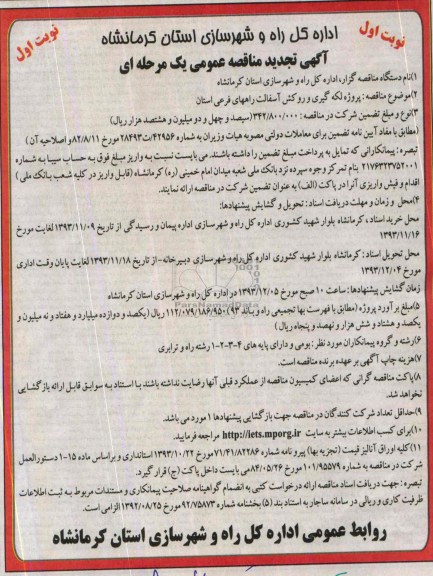 نوبت اول
اداره کل راه و شهرسازی استان کرمانشاه
نوبت اول
آگهی تجدید مناقصه عمومی یک مرحله ای
۱)نام دستگاه مناقصه گزار، اداره کل راه و شهرسازی استان کرمانشاه
۲)موضوع مناقصه : پروژه لکه گیری و روکش آسفالت راههای فرعی استان
۳)نوع و مبلغ تضمین شرکت در مناقصه : ۳۴۲/۸۰۰/۰۰۰(سیصد و چهل و دو میلیون و هشتصد هزار ریال)
(مطابق با مفاد آیین نامه تضمین برای معاملات دولتی مصوبه هیات وزیران به شماره ۴۲۹۵۶/ت۲۸۴۹۳ مورخ ۸۲/۸/۱۱ و اصلاحیه آن)
تبصره : پیمانکارانی که تمایل به پرداخت مبلغ تضمین را داشته باشند. می بایست نسبت به واریز مبلغ فوق به حساب سیبا به شماره
۲۱۷۶۳۲۳۷۵۲۰۰۱ بنام تمرکز وجوه سپرده نزد بانک ملی شعبه میدان امام خمینی (ره) کرمانشاه (قابل واریز در کلیه شعب بانک ملی)
اقدام و فیش واریزی آنرا در پاکت (الف) به عنوان تضمین شرکت در مناقصه ارائه نمایند.
۴)محل و زمان و مهلت دریافت اسناد : تحویل و گشایش پیشنهادها:
محل خرید اسناد ، کرمانشاه بلوار شهید کشوری اداره کل راه و شهرسازی اداره پیمان و رسیدگی از تاریخ ۱۳۹۳/۱۱/۰۹ لغایت مورخ
۱۳۹۳/۱۱/۱۶
محل تحویل اسناد : کرمانشاه بلوار شهید کشوری اداره کل راه و شهرسازی دبیرخانه - از تاریخ ۱۳۹۳/۱۱/۱۸ لغایت پایان وقت اداری
مورخ ۱۳۹۳/۱۲/۰۴
زمان گشایش پیشنهادها : ساعت ۱۰ صبح مورخ ۱۳۹۳/۱۲/۰۵ در اداره کل راه و شهرسازی استان کرمانشاه
۵)مبلغ برآورد پروژه (مطابق با فهرست بها تجمیعی راه و باند ۹۳) ۱۱۲/۰۷۹/۱۸۶/۹۵۰ ریال (یکصد و دوازده میلیارد و هفتاد و نه میلیون و
یکصد و هشتاد و شش هزار و نهصد و پنجاه ریال)
۶)رشته و گروه پیمانکاران مورد نظر : بومی و دارای پایه های ۴-۳-۲-۱ رشته راه و ترابری
۷)هزینه چاپ آگهی بر عهده برنده مناقصه است.
۸)پاکت مناقصه گرانی که اعضای کمیسیون مناقصه از عملکرد قبلی آنها رضایت نداشته باشند با استناد به سوابق قابل ارائه بازگشایی
نخواهد شد.
۹)حداقل تعداد شرکت کنندگان در مناقصه جهت بازگشایی پیشنهادها ۱ مورد می باشد.
۱۰)برای کسب اطلاعات بیشتر به سایت http://iets.mporg.ir مراجعه فرمایید.
۱۱)کلیه اوراق آنالیز قیمت (تجزیه بها) پیرو نامه شماره ۷۱/۴۱/۸۲۲۸۶ مورخ ۱۳۹۳/۱۰/۲۲ استانداری و براساس ماده ۱۵-۱ دستورالعمل
شرکت در مناقصه به شماره ۱۰۱/۹۵۵۷۹ مورخ ۸۴/۰۵/۲۶ می بایست داخل پاکت (ج) قرار گیرد.
تبصره : جهت دریافت اسناد مناقصه ارائه درخواست کتبی به انضمام گواهینامه صلاحیت پیمانکاری و مستندات مربوط به ثبت اطلاعات
ظرفیت کاری و ریالی در سامانه ساجار به استناد بند (۵) بخشنامه شماره ۹۲/۷۵۸۷۳ مورخ ۱۳۹۲/۰۸/۲۵ الزامی است.
روابط عمومی اداره کل راه و شهرسازی استان کرمانشاه